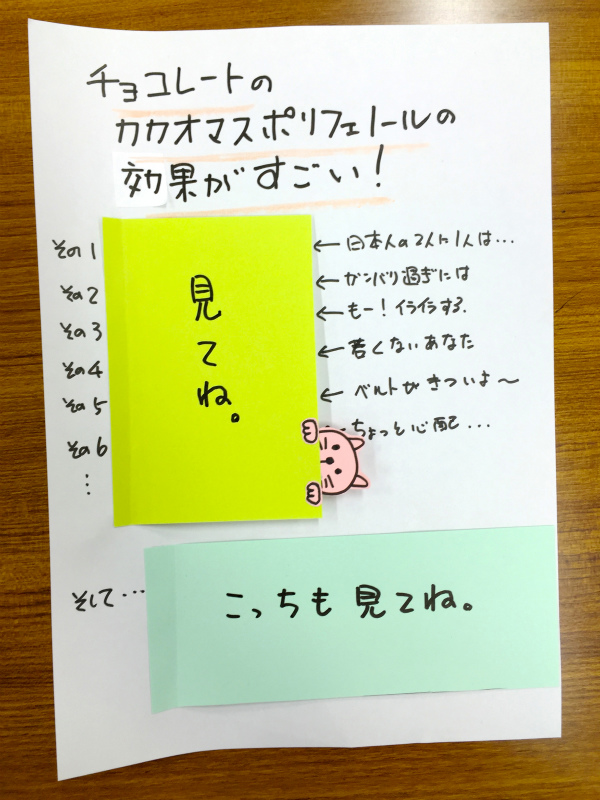 チョコレートの
カカオマスポリフェノールの
効果がすごい！
その1 ← 日本人の2人に1人は…
その2 ← ガンバリ過ぎには
その3 ← もー！イライラする.
その4 ← 若くないあなた
その5 ← ベルトがきついよ〜
その6 …ちょっと心配…
⋮
見てね。
そして… こっちも見てね。